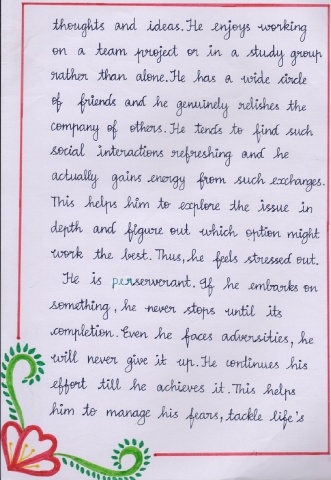 thoughts and ideas. He enjoys working
on a team project or in a study group
rather than alone. He has a wide circle
of friends and he genuinely relishes the
company of others. He tends to find such
social interactions refreshing and he
actually gains energy from such exchanges.
This helps him to explore the issue in
depth and figure out which option might
work the best. Thus, he feels stressed out.
He is perserverant. If he embarks on
something, he never stops until its
completion. Even he faces adversities, he
will never give it up. He continues his
effort till he achieves it. This helps
him to manage his fears, tackle life's